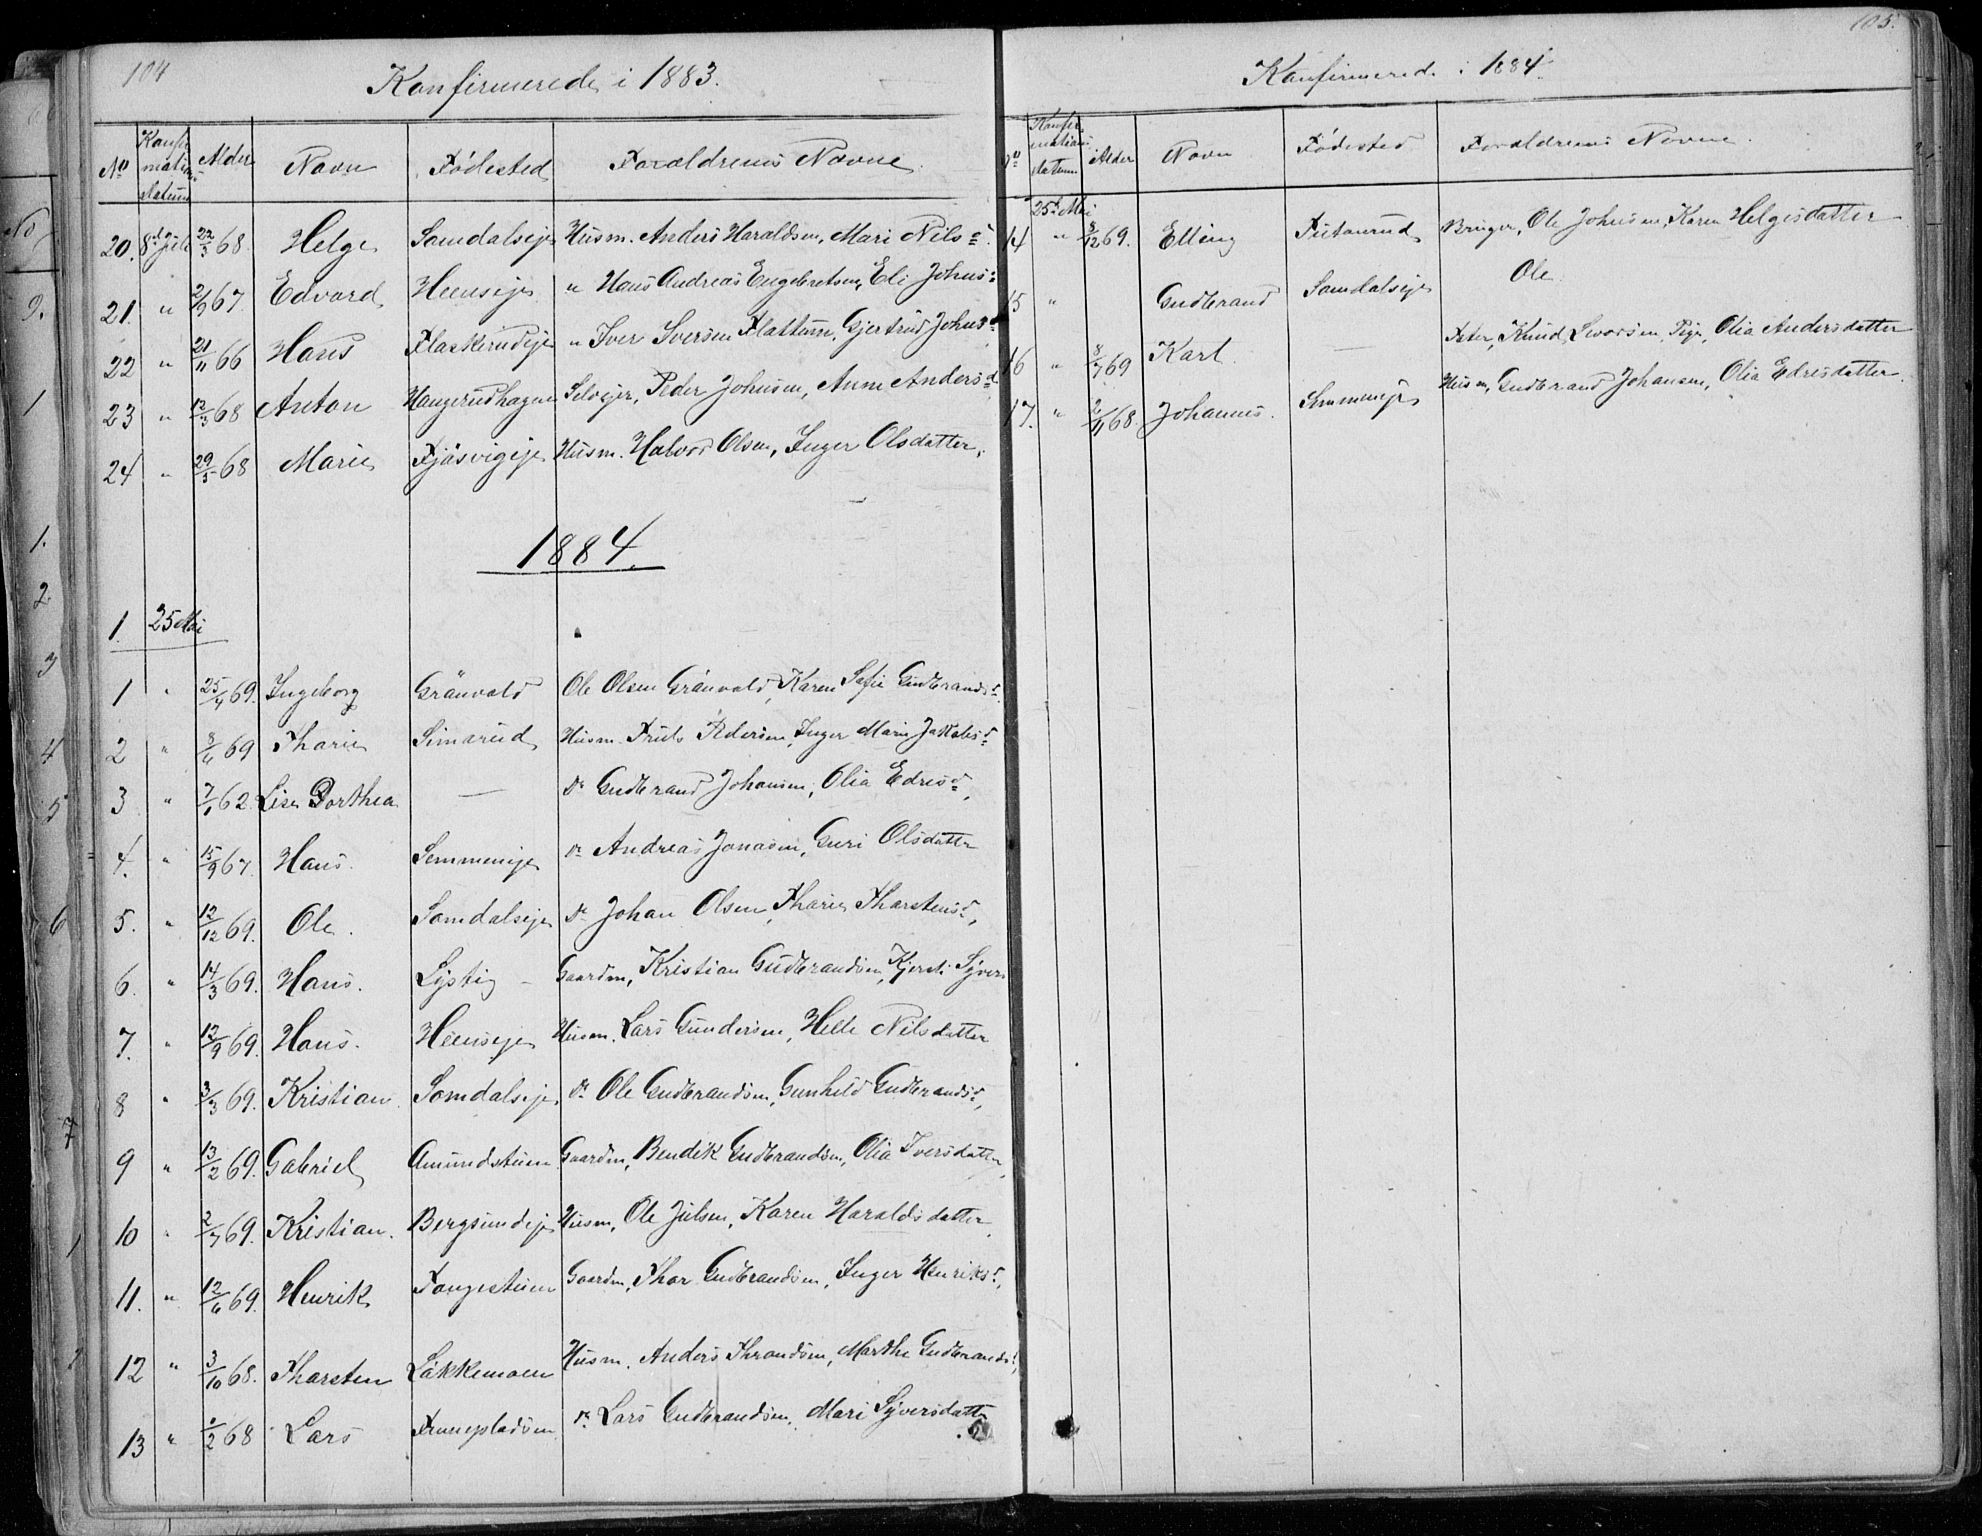 104
Konfirmerede i 1883.
No Konfirmations datum Alder Navn Fødested Forældrenes Navne
20. 8de Juli 22/3 68. Helge Somdalseje Husm. Anders Haraldsen, Mari Nilsd.
21. " 2/9 67. Edvard Heenseje " Hans Andreas Engebretsen, Eli Johnsd.
22 " 21/11 66 Hans Flaskerudeje " Iver Iversen Flattum, Gjertrud Johnsd.
23 " 12/3 68 Anton Haugerudhagen Selvejer, Peder Johnsen, Anne Andersd.
24 " 29/5 68 Marie Fjösvigeje Husm. Halvor Olsen, Inger Olsdatter.
1884.
1. 25 Mai
1 " 25/4 69. Ingeborg Grönvold Ole Olsen Grönvold, Karen Sofie Gudbrandsd.
2 " 8/6 69 Thorie Simarud Husm. Truls Pedersen, Inger Marie Jakobsd.
3 " 7/1 62. Lise Dorthea — do Gudbrand Johansen, Olia Edresd.
4. " 15/9 67. Hans. Semmeneje do Andreas Jonasen, Guri Olsdatter
5. " 12/12 69. Ole. Somdalseje do Johan Olsen, Thorie Thorstensd.
6. " 14/3 69. Hans. Lystig Gaardm, Kristian Gudbrandsen, Kjersti Syvers
7. " 12/9 69. Hans. Heenseje Husm. Lars Gundersen, Helle Nilsdatter
8 " 3/3 69. Kristian Somdalseje. do Ole Gudbrandsen, Gunhild Gudbrandsd.
9 " 13/2 69. Gabriel Amundstuen Gaardm, Bendik Gudbrandsen, Olia Iversdatter
10 " 2/7 69. Kristian. Bergsundeje Husm, Ole Julsen, Karen Haraldsdatter
11. " 12/6 69. Henrik Tangestuen Gaardm, Thor Gudbrandsen, Inger Henriksd.
12 " 3/10 68. Thorsten Løkkemoen Husm. Anders Throndsen, Marthe Gudbrandsd.
13 " /2 68 Lars do Lars Gudbrandsen, Mari Syversdatter
105.
Konfirmerede i 1884.
No Konfirmations datum Alder Navn Fødested Forældrenes Navne.
25de Mai
14 " 8/12 69. Elling Bruger, Ole Johnsen, Karen Helgesdatter
15 " Gudbrand Somdalseje Ole
16 " 8/7 69 Karl. — Knud Pige, Olia Andersdatter
17. " 2/11 68. Johannes. Semmeneje Husm, Gudbrand Johansen, Olia Edresdatter.